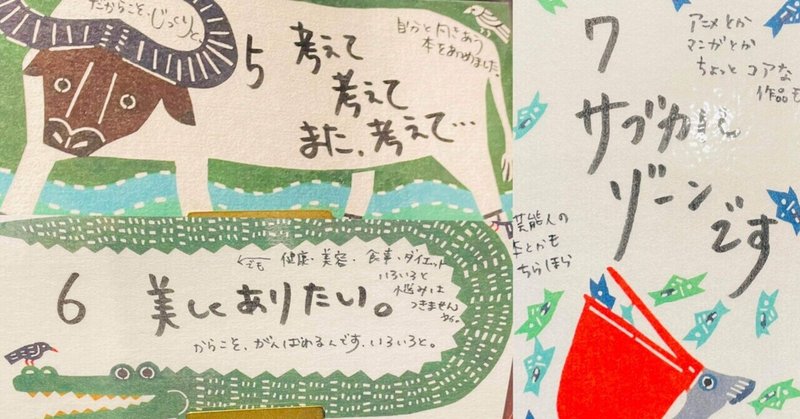 だからこそ、じっくりと。
5
考えて
考えて
また、考えて…
自分と向きあう
本をあつめました。
6
美しくありたい。
でも
健康・美容・食事・ダイエット
いろいろと
悩みは
つきません
からこそ、がんばれるんです、いろいろと。
7
サブカル
ゾーンです
アニメとか
マンガとか
ちょっとコアな
作品も
芸能人の
本とかも
ちらほら